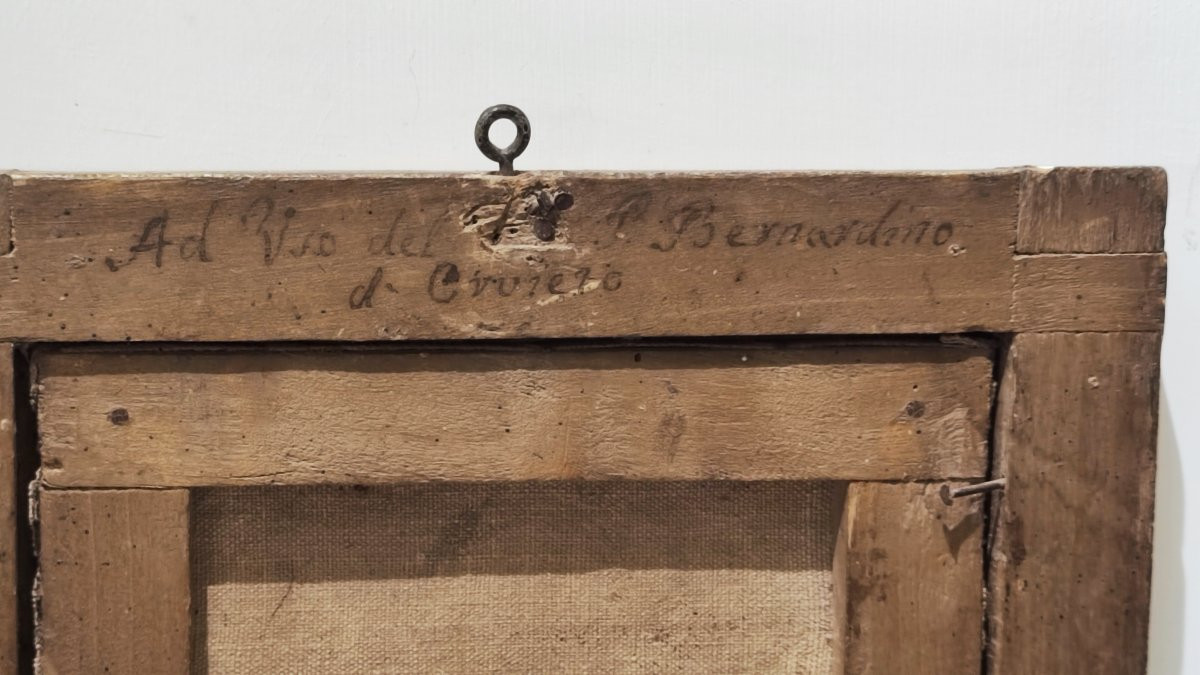 Ad Vso del P. Bernardino
d. Orvieto